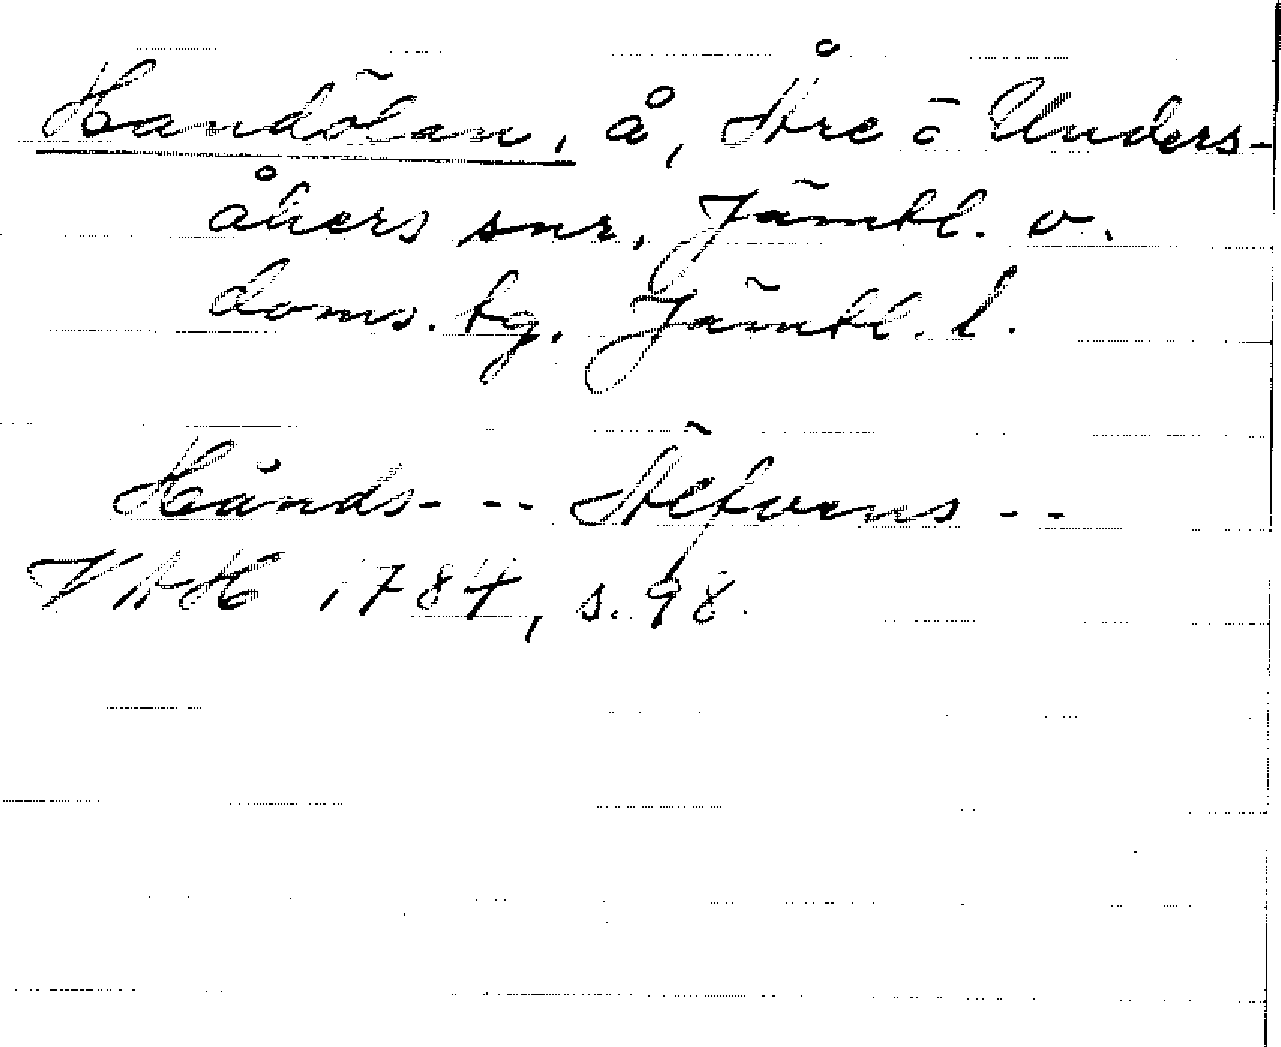 Handölan, å, Åre o Unders-
åkers snr, Jämtl. v.
doms. tg. Jämtl. l.
Hånds- -- Älfvens --
VAH 1784, s. 98.